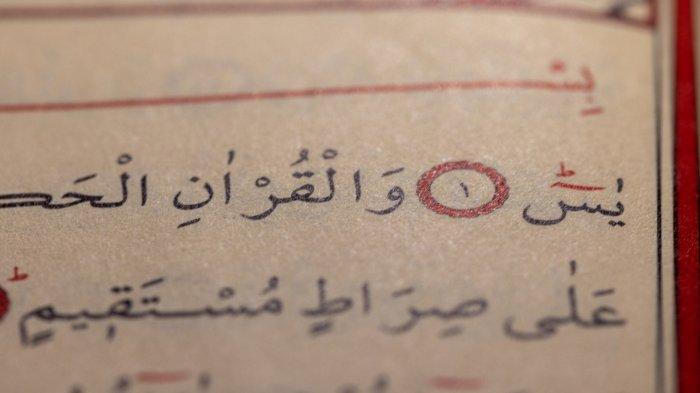 يٰسٓ ١ وَالْقُرْاٰنِ الْحَك
عَلٰى صِرَاطٍ مُسْتَق۪يمٍ ط